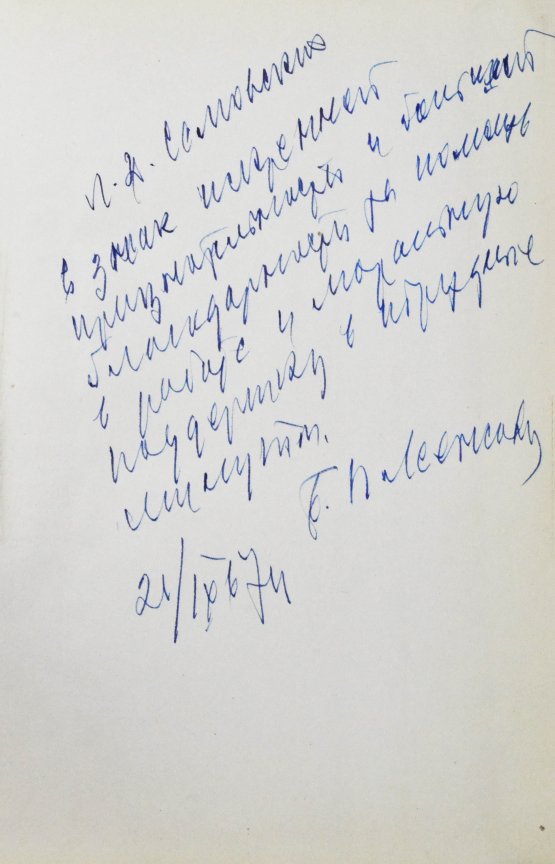 в знак искренней
признательности и большой
благодарности за помощь
в работе и моральную
поддержку в
минуты.
21/IX 67